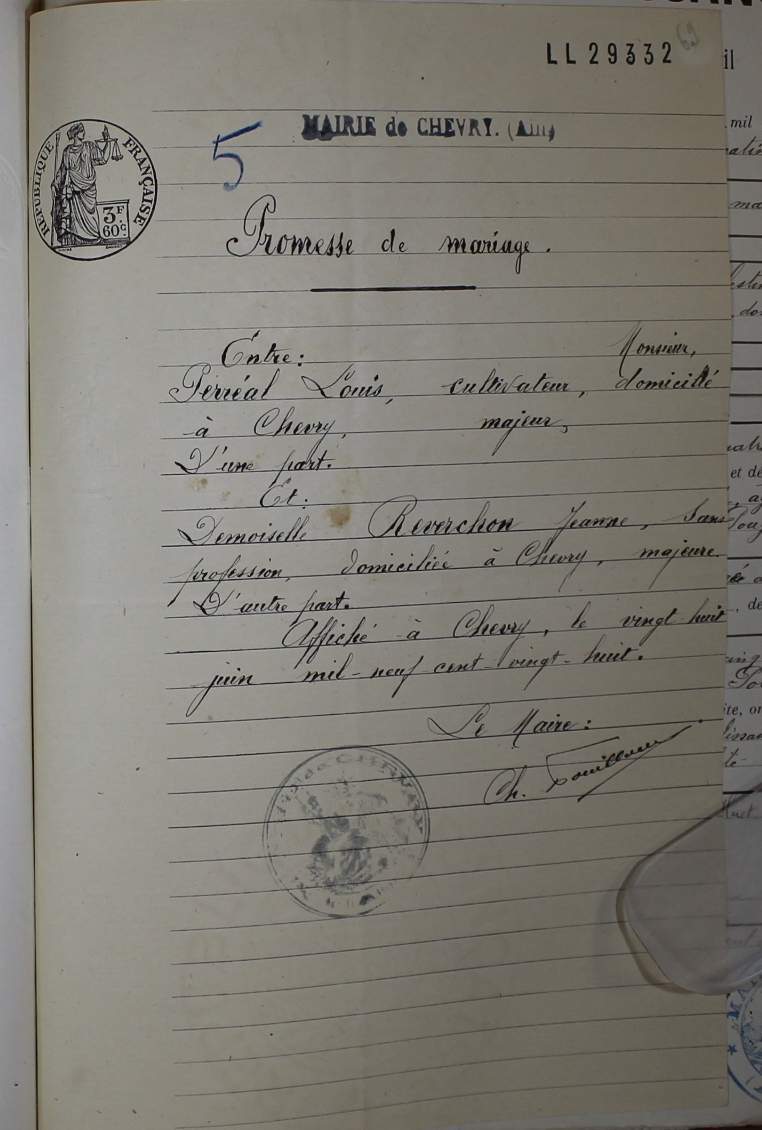 LL 29332
69
MAIRIE de CHEVRY. (Ain)
5
RÉPUBLIQUE FRANÇAISE
3F
60c
Promesse de mariage.
Entre: Monsieur,
Perréal Louis, cultivateur, domicilié
à Chevry, majeur,
D'une part.
Et:
Demoiselle Reverchon Jeanne, sans
profession, domiciliée à Chevry, majeure.
D'autre part.
Affiché à Chevry, le vingt-huit
juin mil-neuf-cent-vingt-huit.
Le Maire:
Ch.